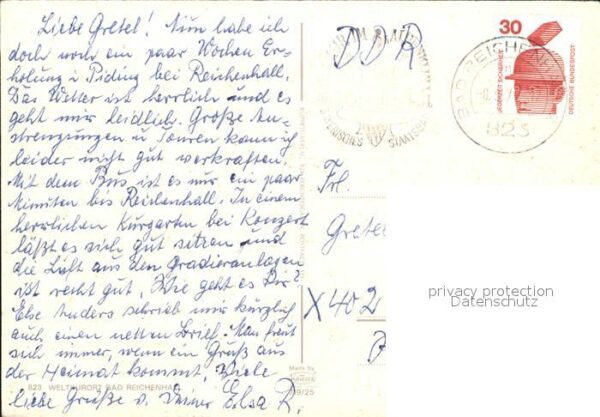 Liebe Gretel! Nun habe ich
doch noch ein paar Wochen Er-
holung in Piding bei Reichenhall.
Das Wetter ist herrlich und es
geht mir leidlich. Große An-
strengungen u. Touren kann ich
leider nicht gut verkraften.
Mit dem Bus ist es nur ein paar
Minuten bis Reichenhall. In einem
herrlichen Kurgarten bei Konzert
läßt es sich gut sitzen und
die Luft aus den Gradieranlagen
ist recht gut. Wie geht es Dir?
Else Anders schrieb mir kürzlich
auch einen netten Brief. Man freut
sich immer, wenn ein Gruß aus
der Heimat kommt. Viele
liebe Grüße v. Deiner Elsa R.
823 WELTKURORT BAD REICHENHALL
Made by
19/25
DDR
BAYERISCHES STAATSBAD
BAD REICHENHALL
823
30
JEDERZEIT SICHERHEIT
DEUTSCHE BUNDESPOST
Frl.
Gretel
X402
privacy protection
Datenschutz